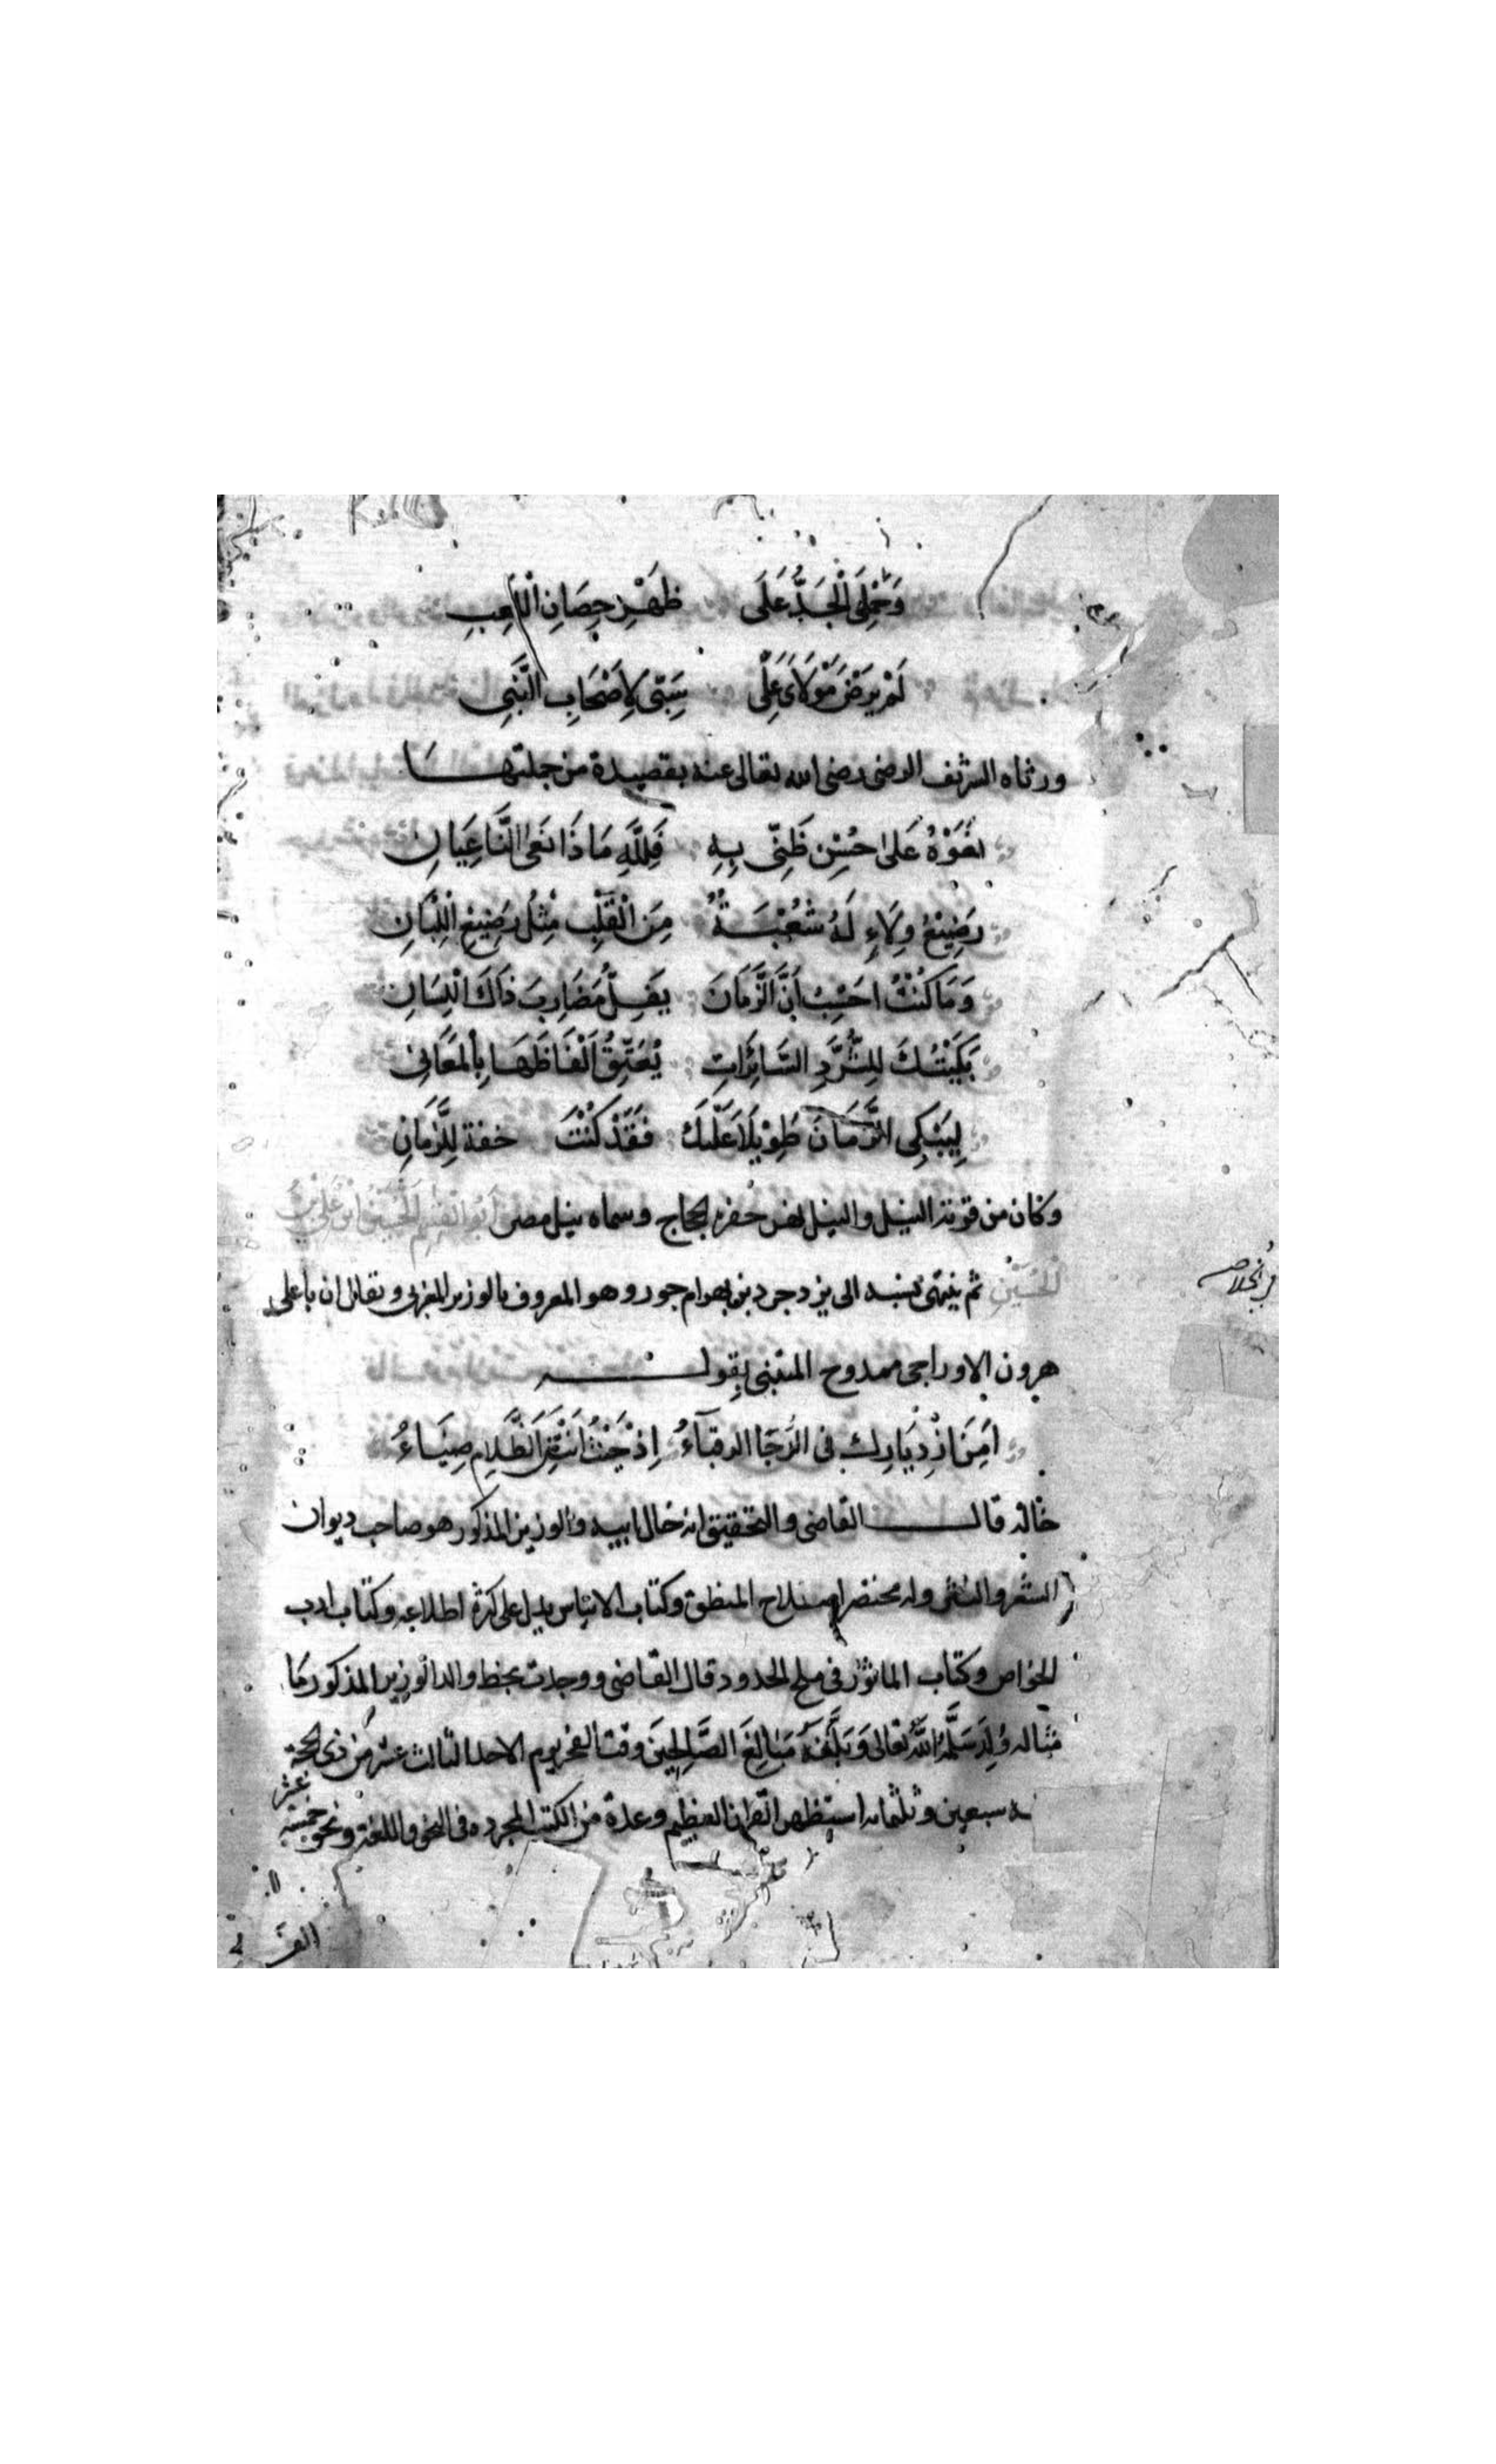 وَحَمْلِيَ الْجَدَّ عَلَى ظَهْرِ حِصَانِ اللَّعِبِ
لَمْ يَرْضَ مَوْلَايَ عَلِي سَبِّي لِأَصْحَابِ النَّبِي
ورثاه الشريف الرضى رضى الله تعالى عنه بقصيدة من جملتها
نَعَوْهُ عَلَى حُسْنِ ظَنِّى بِهِ فَلِلَّهِ مَا ذَا نَعَى النَّاعِيَانِ
رَضِيْعُ وِلَاءٍ لَهُ شُعْبَةٌ مِنَ الْقَلْبِ مِثْلُ رَضِيْعِ اللِّبَانِ
وَمَا كُنْتُ احَسِبُ اَنَّ الزَّمَانَ يَفِلُّ مَضَارِبَ ذَاكَ اللِّسَانِ
بَكَيْتُكَ لِلشُّرَّدِ السَّائِرَاتِ يُعَتِّقُ اَلْفَاظَهَا بِالْمَعَانِى
لِيَبْكِى الزَّمَانَ طَوِيْلًا عَلَيْكَ فَقَدْ كُنْتَ خفة لِلزَّمَانِ
وكان من قرية النيل والنيل نهر حفره الحجاج وسماه بنيل مصر اَبُو الْقٰسِمِ الْحُسَيْنُ ابْنُ عَلِىِّ بْنِ
الْحُسَيْنِ ثم ينتهى نسبه الى يزدجرد بن بهرام جور وهو المعروف بالوزير المغربى ويقال ان با على
هرون الاوراجى ممدوح المتنبى بقوله
اَمِنَ ازْدِيَارِكِ فى الدُّجَا الرقبآءُ اِذْ حَيْثُ اَنْتِ مِنَ الظَّلَامِ ضِيَاءُ
خاله قال القاضى والتحقيق انه خال ابيه والوزير المذكور هو صاحب ديوان
الشعر والنثر وله مختصر اصلاح المنطق وكتاب الايناس يدل على كثرة اطلاعه وكتاب ادب
الخواص وكتاب الماثور فى ملح الخدود قال القاضى ووجدت بخط والد الوزير المذكور ما
مثاله وُلِدَ سَلَّمَهُ اللّٰهُ تعالى وَبَلَّغَهُ مَبَالِغَ الصَّالِحِيْنَ وقت الفجر يوم الاحد الثالث عشر من ذى الحجة
سبعين وثلثمايه استظهر القران العظيم وعدة من الكتب المجرده فى النحو واللغة ونحو خمسة عشر
الف